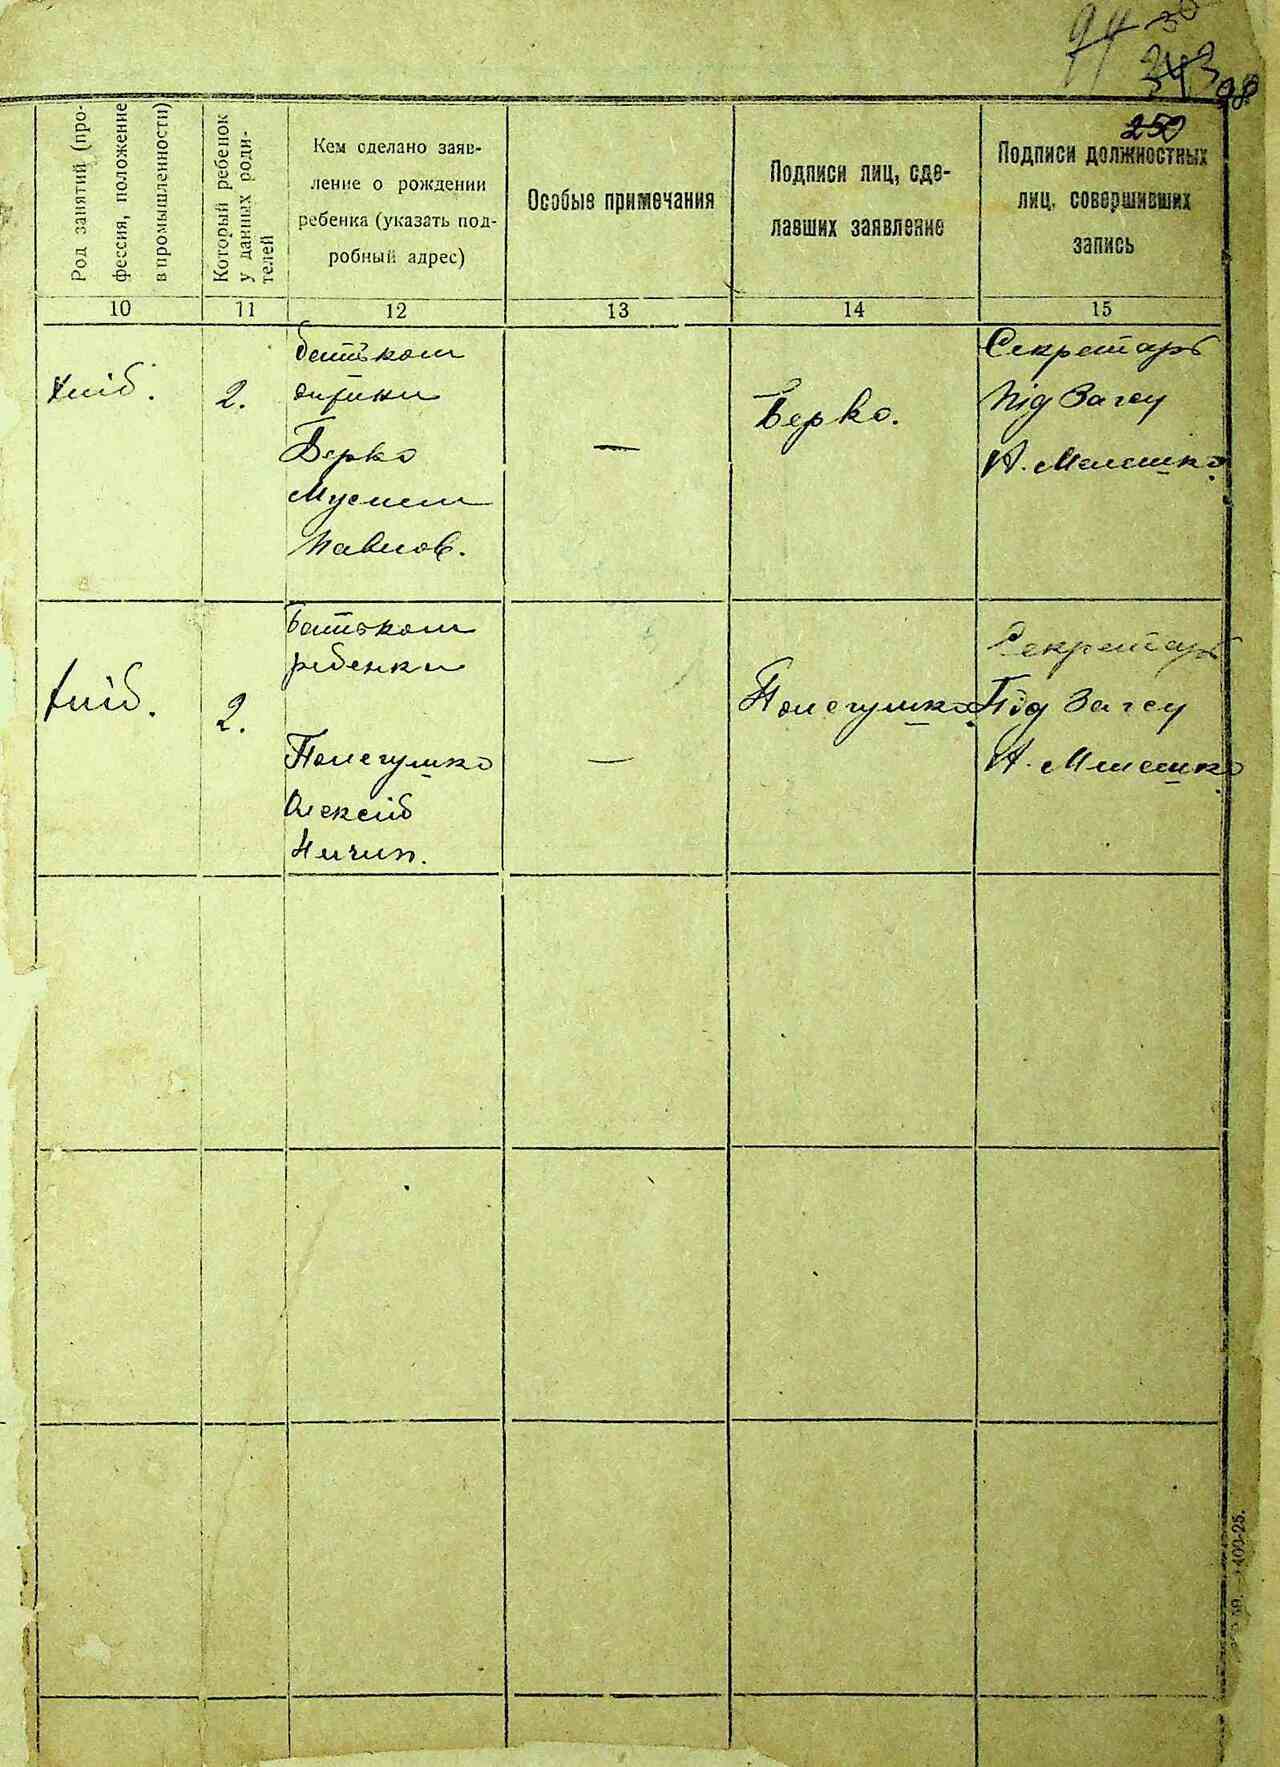 94
343
98
250
Род занятий (про-
фессия, положение
в промышленности)
Который ребенок
у данных роди-
телей
Кем сделано заяв-
ление о рождении
ребенка (указать под-
робный адрес)
Особые примечания
Подписи лиц, сде-
лавших заявление
Подписи должностных
лиц, совершивших
запись
10 11 12 13 14 15
хліб. 2.
батьком
дитини
Берко
Мусием
Павлов.
—
Берко.
Секретарь
Під Загсу
А. Мелешко
хліб. 2.
батьком
ребенки
Полегушко
Олексій
Ничип.
—
Полегушко.
Секретарь
Під Загсу
А. Мелешко
400-25.